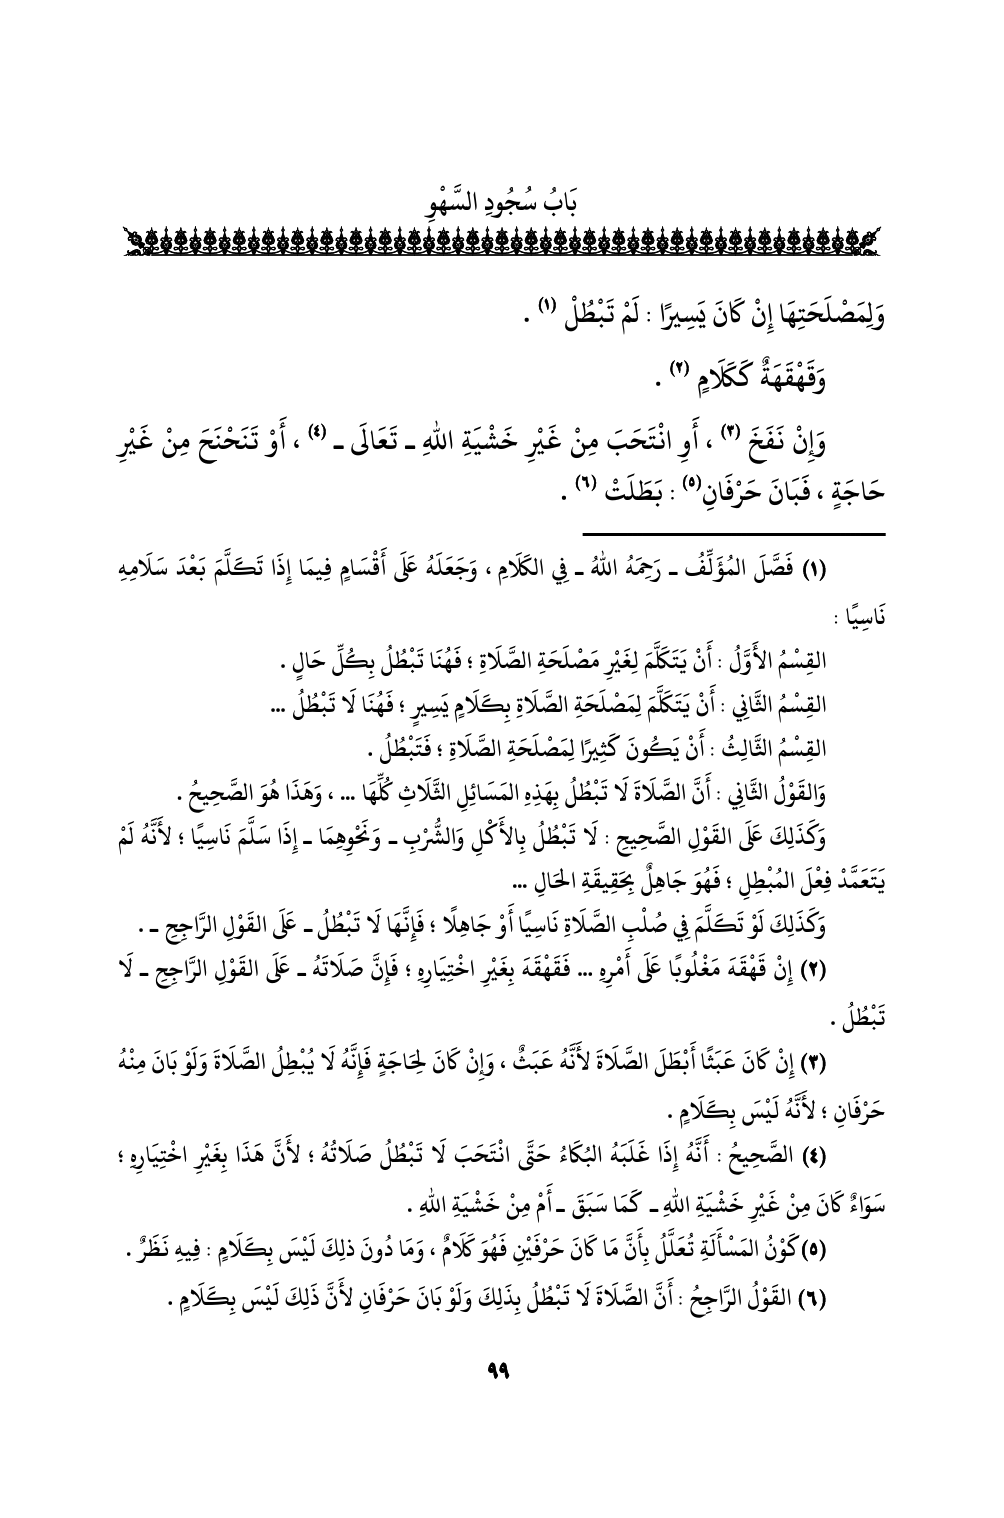 بَابُ سُجُودِ السَّهْوِ
وَلِمَصْلَحَتِهَا إِنْ كَانَ يَسِيرًا : لَمْ تَبْطُلْ (١) .
وَقَهْقَهَةٌ كَكَلَامٍ (٢) .
وَإِنْ نَفَخَ (٣) ، أَوِ انْتَحَبَ مِنْ غَيْرِ خَشْيَةِ اللهِ ـ تَعَالَى ـ (٤) ، أَوْ تَنَحْنَحَ مِنْ غَيْرِ
حَاجَةٍ ، فَبَانَ حَرْفَانِ(٥) : بَطَلَتْ (٦) .
(١) فَصَّلَ المُؤَلِّفُ ـ رَحِمَهُ اللهُ ـ فِي الكَلَامِ ، وَجَعَلَهُ عَلَى أَقْسَامٍ فِيمَا إِذَا تَكَلَّمَ بَعْدَ سَلَامِهِ
نَاسِيًا :
القِسْمُ الأَوَّلُ : أَنْ يَتَكَلَّمَ لِغَيْرِ مَصْلَحَةِ الصَّلَاةِ ؛ فَهُنَا تَبْطُلُ بِكُلِّ حَالٍ .
القِسْمُ الثَّانِي : أَنْ يَتَكَلَّمَ لِمَصْلَحَةِ الصَّلَاةِ بِكَلَامٍ يَسِيرٍ ؛ فَهُنَا لَا تَبْطُلُ ...
القِسْمُ الثَّالِثُ : أَنْ يَكُونَ كَثِيرًا لِمَصْلَحَةِ الصَّلَاةِ ؛ فَتَبْطُلُ .
وَالقَوْلُ الثَّانِي : أَنَّ الصَّلَاةَ لَا تَبْطُلُ بِهَذِهِ المَسَائِلِ الثَّلَاثِ كُلِّهَا ... ، وَهَذَا هُوَ الصَّحِيحُ .
وَكَذَلِكَ عَلَى القَوْلِ الصَّحِيحِ : لَا تَبْطُلُ بِالأَكْلِ وَالشُّرْبِ ـ وَنَحْوِهِمَا ـ إِذَا سَلَّمَ نَاسِيًا ؛ لأَنَّهُ لَمْ
يَتَعَمَّدْ فِعْلَ المُبْطِلِ ؛ فَهُوَ جَاهِلٌ بِحَقِيقَةِ الحَالِ ...
وَكَذَلِكَ لَوْ تَكَلَّمَ فِي صُلْبِ الصَّلَاةِ نَاسِيًا أَوْ جَاهِلًا ؛ فَإِنَّهَا لَا تَبْطُلُ ـ عَلَى القَوْلِ الرَّاجِحِ ـ .
(٢) إِنْ قَهْقَهَ مَغْلُوبًا عَلَى أَمْرِهِ ... فَقَهْقَهَ بِغَيْرِ اخْتِيَارِهِ ؛ فَإِنَّ صَلَاتَهُ ـ عَلَى القَوْلِ الرَّاجِحِ ـ لَا
تَبْطُلُ .
(٣) إِنْ كَانَ عَبَثًا أَبْطَلَ الصَّلَاةَ لأَنَّهُ عَبَثٌ ، وَإِنْ كَانَ لِحَاجَةٍ فَإِنَّهُ لَا يُبْطِلُ الصَّلَاةَ وَلَوْ بَانَ مِنْهُ
حَرْفَانِ ؛ لأَنَّهُ لَيْسَ بِكَلَامٍ .
(٤) الصَّحِيحُ : أَنَّهُ إِذَا غَلَبَهُ البُكَاءُ حَتَّى انْتَحَبَ لَا تَبْطُلُ صَلَاتُهُ ؛ لأَنَّ هَذَا بِغَيْرِ اخْتِيَارِهِ ؛
سَوَاءٌ كَانَ مِنْ غَيْرِ خَشْيَةِ اللهِ ـ كَمَا سَبَقَ ـ أَمْ مِنْ خَشْيَةِ اللهِ .
(٥) كَوْنُ المَسْأَلَةِ تُعَلَّلُ بِأَنَّ مَا كَانَ حَرْفَيْنِ فَهُوَ كَلَامٌ ، وَمَا دُونَ ذلِكَ لَيْسَ بِكَلَامٍ : فِيهِ نَظَرٌ .
(٦) القَوْلُ الرَّاجِحُ : أَنَّ الصَّلَاةَ لَا تَبْطُلُ بِذَلِكَ وَلَوْ بَانَ حَرْفَانِ لأَنَّ ذَلِكَ لَيْسَ بِكَلَامٍ .
٩٩